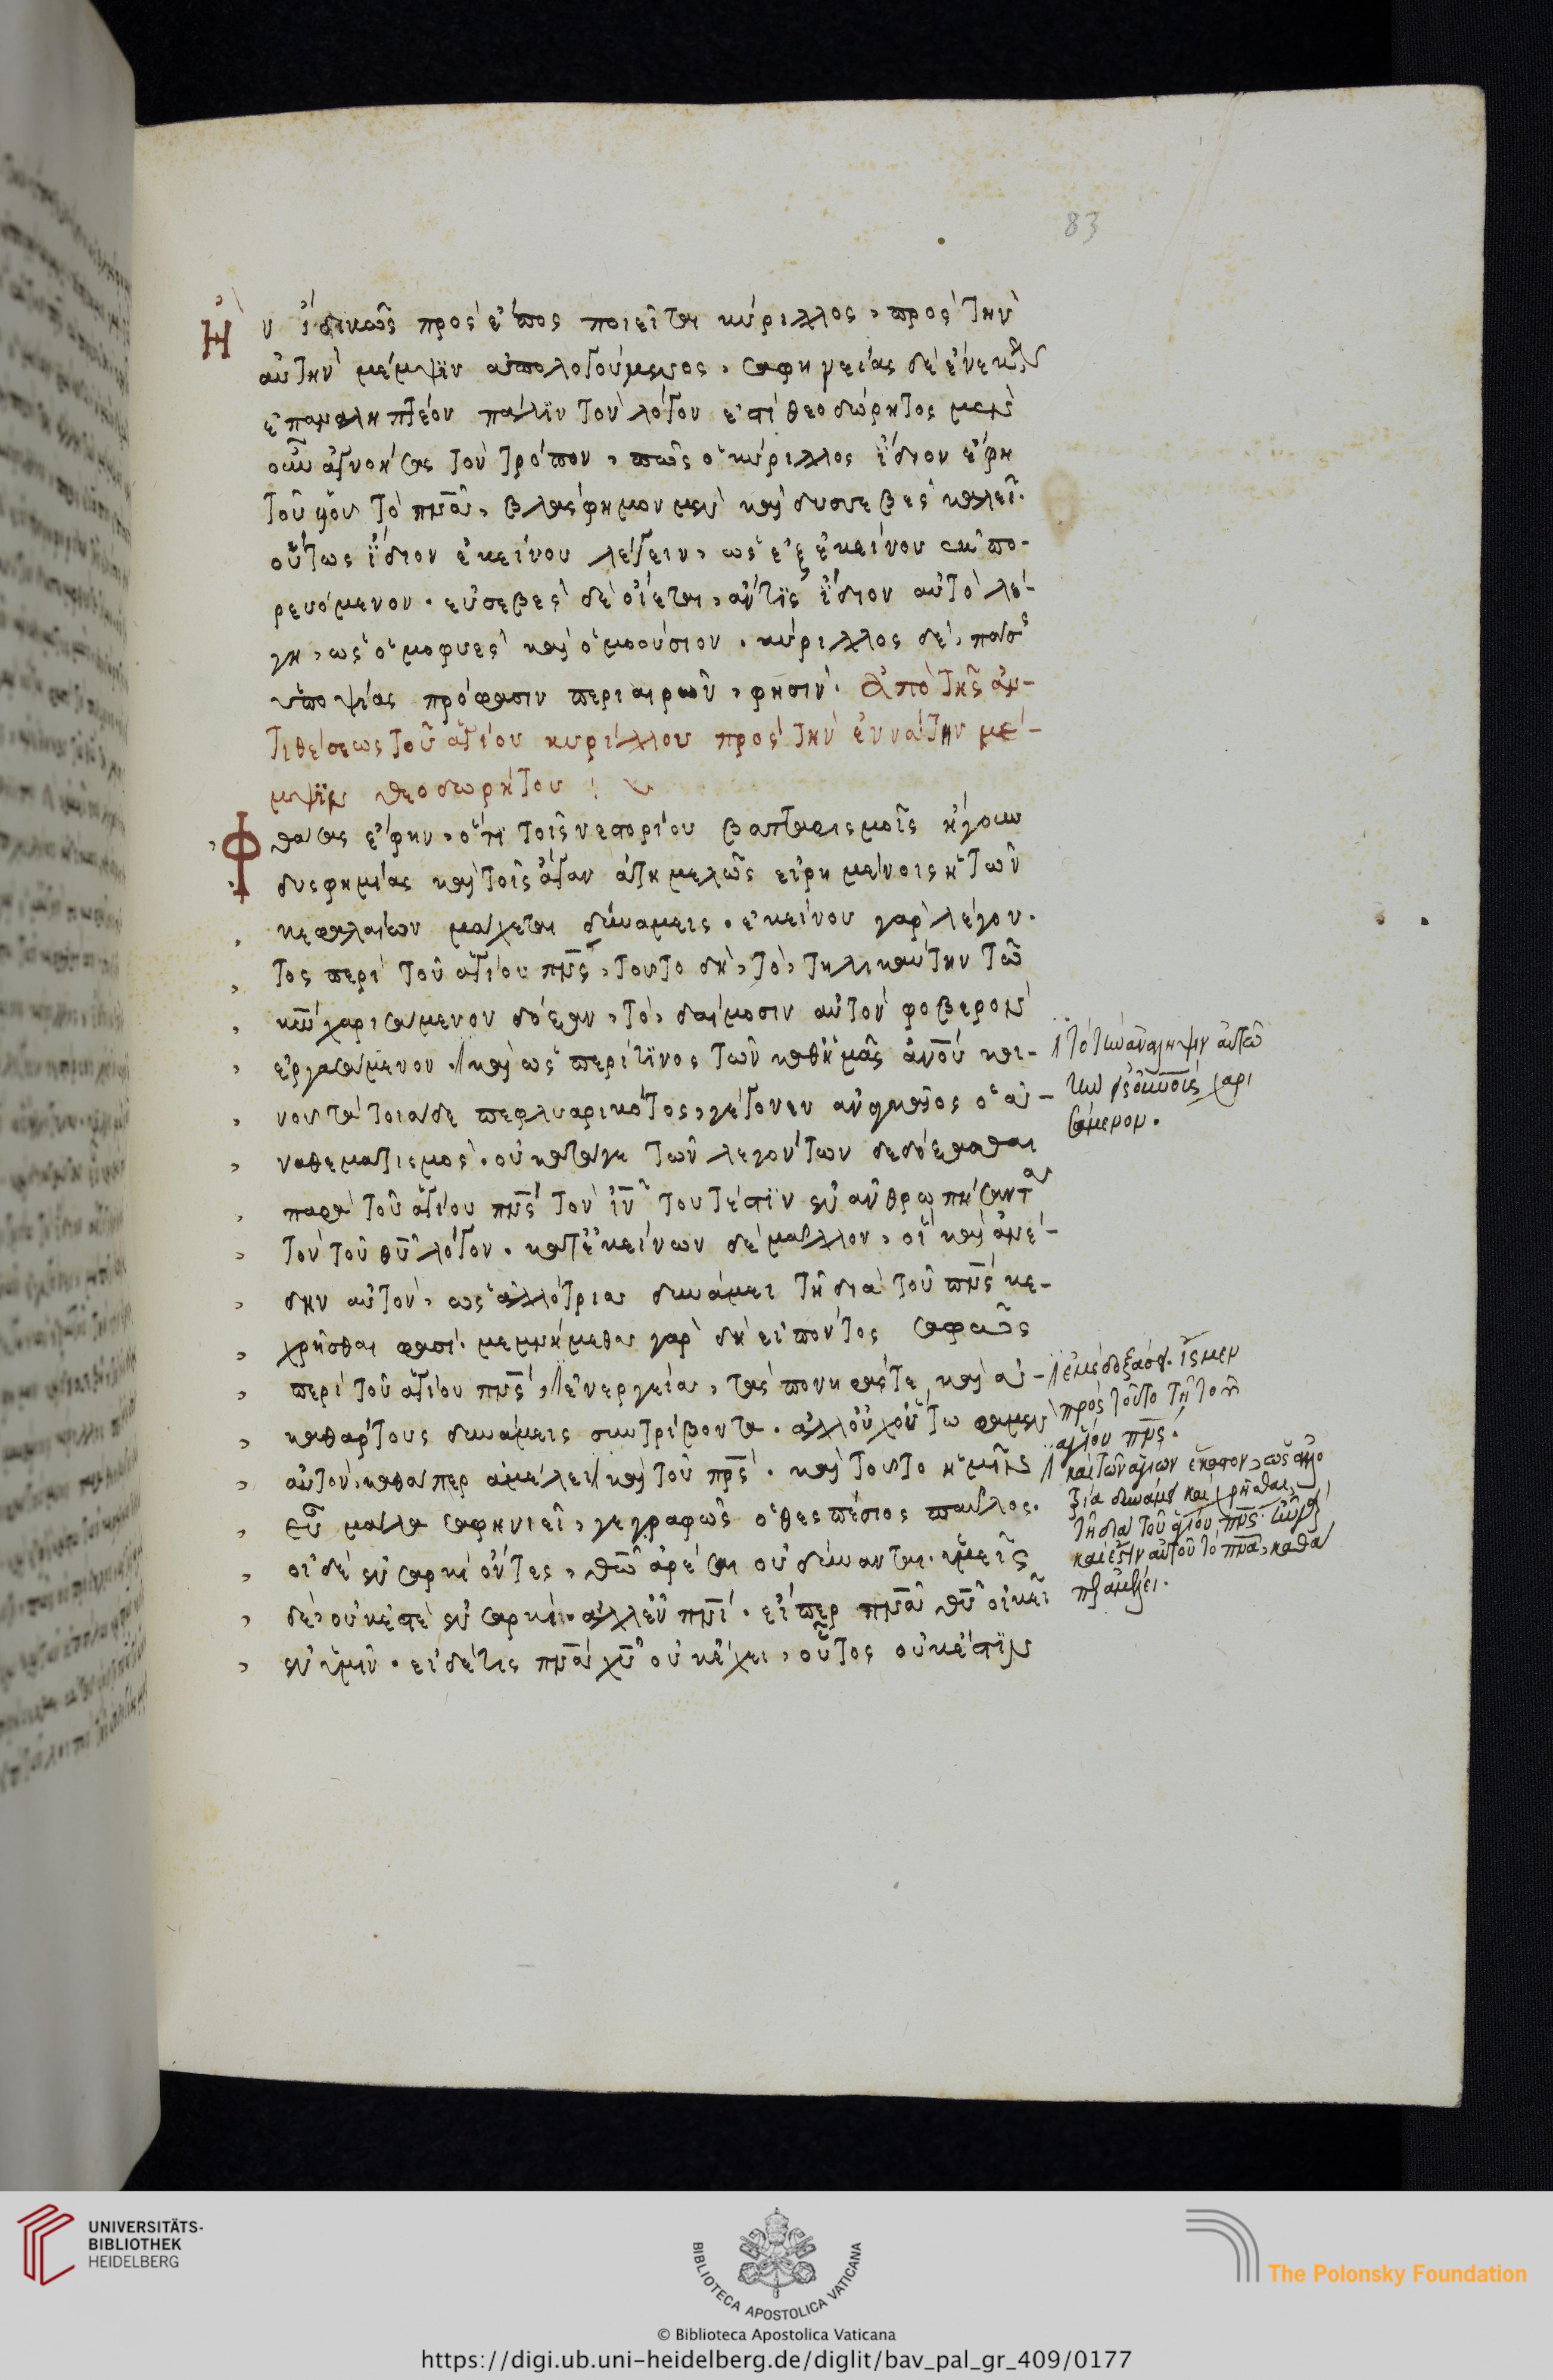 83
Ἣν ἰδικῶς πρὸς ἔπος ποιεῖται κύριλλος, πρὸς τὴν
αὐτὴν μέμψϊν ἀπολογούμενος, σαφηνείας δὲ ἕνεκεν
ἐπαναληπτέον πάλϊν τὸν λόγον ἐπὶ θεοδώρητος μὲν
οὖν ἀγνοήσας τὸν τρόπον, πῶς ὁ κύριλλος ἴδιον ἔφη
τοῦ υἱοῦ τὸ πνᾶ, βλάσφημον μὲν καὶ δυσσεβὲς καλεῖ.
οὕτως ἴδιον ἐκείνου λέγειν, ὡς ἐξ ἐκείνου ἐκπο-
ρευόμενον. εὐσεβὲς δὲ οἴεται, ἄν τϊς ἴδιον αὐτὸ λέ-
γη, ὡς ὁμοφυὲς καὶ ὁμοούσιον. κύριλλος δὲ, πάσης
ὑποψίας πρόφασιν περιαιρῶν, φησίν. Ἀπὸ τῆς ἀν-
τιθέσεως τοῦ ἁγίου κυρίλλου πρὸς τὴν ἐννάτην μέ-
μψϊν θεοδωρήτου
Φθάσας ἔφην, ὅτι τοῖς νεστορίου βατταρισμοῖς ἤγουν
δυσφημίας καὶ τοῖς ἄγαν ἀτημελῶς εἰρημένοις ἡ τῶν
κεφαλαίων μάχεται δύναμεις. ἐκείνου γὰρ λέγον-
τος περὶ τοῦ ἁγίου πνς, τοῦτο δὴ, τὸ, τηλικαύτην τῶ
κω χαρισάμενον δόξαν, τὸ, δαίμοσιν αὐτὸν φοβερὸν
ἐργασάμενον. καὶ ὡς περί τϊνος τῶν καθ' ἡμᾶς ἀνου κοι-
νοῦ τὰ τοιάδε πεφλυαρικότος, γέγονεν ἀναγκαῖος ὁ ἀ-
ναθεματισμὸς. οὐ κατάγε τῶν λεγόντων δεδόξασθαι
παρὰ τοῦ ἁγίου πνς τὸν ιν τουτέστϊν ἐνανθρωπήσαντα
τὸν τοῦ θυ λόγον. κατ' ἐκείνων δὲ μᾶλλον, οἳ καὶ ἀνέ-
δην αὐτὸν, ὡς ἀλλοτρία δυνάμει τῆ διὰ τοῦ πνς κε-
χρῆσθαι φασί. μεμνήμεθα γὰρ δὴ εἰπόντος σαφῶς
περὶ τοῦ ἁγίου πνς, ἐνεργεία, τάς πονηράς τε καὶ ἀ-
καθάρτους δυνάμεις συντρίβοντα. ἀλλ' οὐχ οὕτω φαμὲν
αὐτὸν, καθάπερ ἀμέλει καὶ τοῦ πρς. καὶ τοῦτο ἡμῖν
εὖ μάλα σαφηνιεῖ, γεγραφῶς ὁ θεσπέσιος παῦλος.
οἱ δὲ ἐν σαρκὶ ὄντες, θω ἀρέσαι οὐ δύνανται. ὑμεῖς
δὲ οὐκ ἐστὲ ἐν σαρκὶ. ἀλλ' ἐν πνι. εἴπερ πνα θυ οἰκεῖ
ἐν ὑμῖν. εἰ δέ τις πνα χυ οὐκ ἔχει, οὗτος οὐκ ἔστϊν
τὸ τὴν ἀνάληψιν αὐτῶ
τὴν εἰς οὐνοὺς χαρι
σάμενον.
ἐμὲ δοξάσει. ἴσμεν
πρὸς τοῦτο τῆ τοῦ
ἁγίου πνς.
καὶ τῶν ἁγίων ἕκαστον, ὡς ἀλλο
τρία δυνάμει κεχρῆσθαι,
τῆ διὰ τοῦ ἁγίου πνς.
καὶ ἔστιν αὐτοῦ τὸ πνα, καθά
περ ἀμέλει.
UNIVERSITÄTS-
BIBLIOTHEK
HEIDELBERG
BIBLIOTECA APOSTOLICA VATICANA
The Polonsky Foundation
© Biblioteca Apostolica Vaticana
https://digi.ub.uni-heidelberg.de/diglit/bav_pal_gr_409/0177